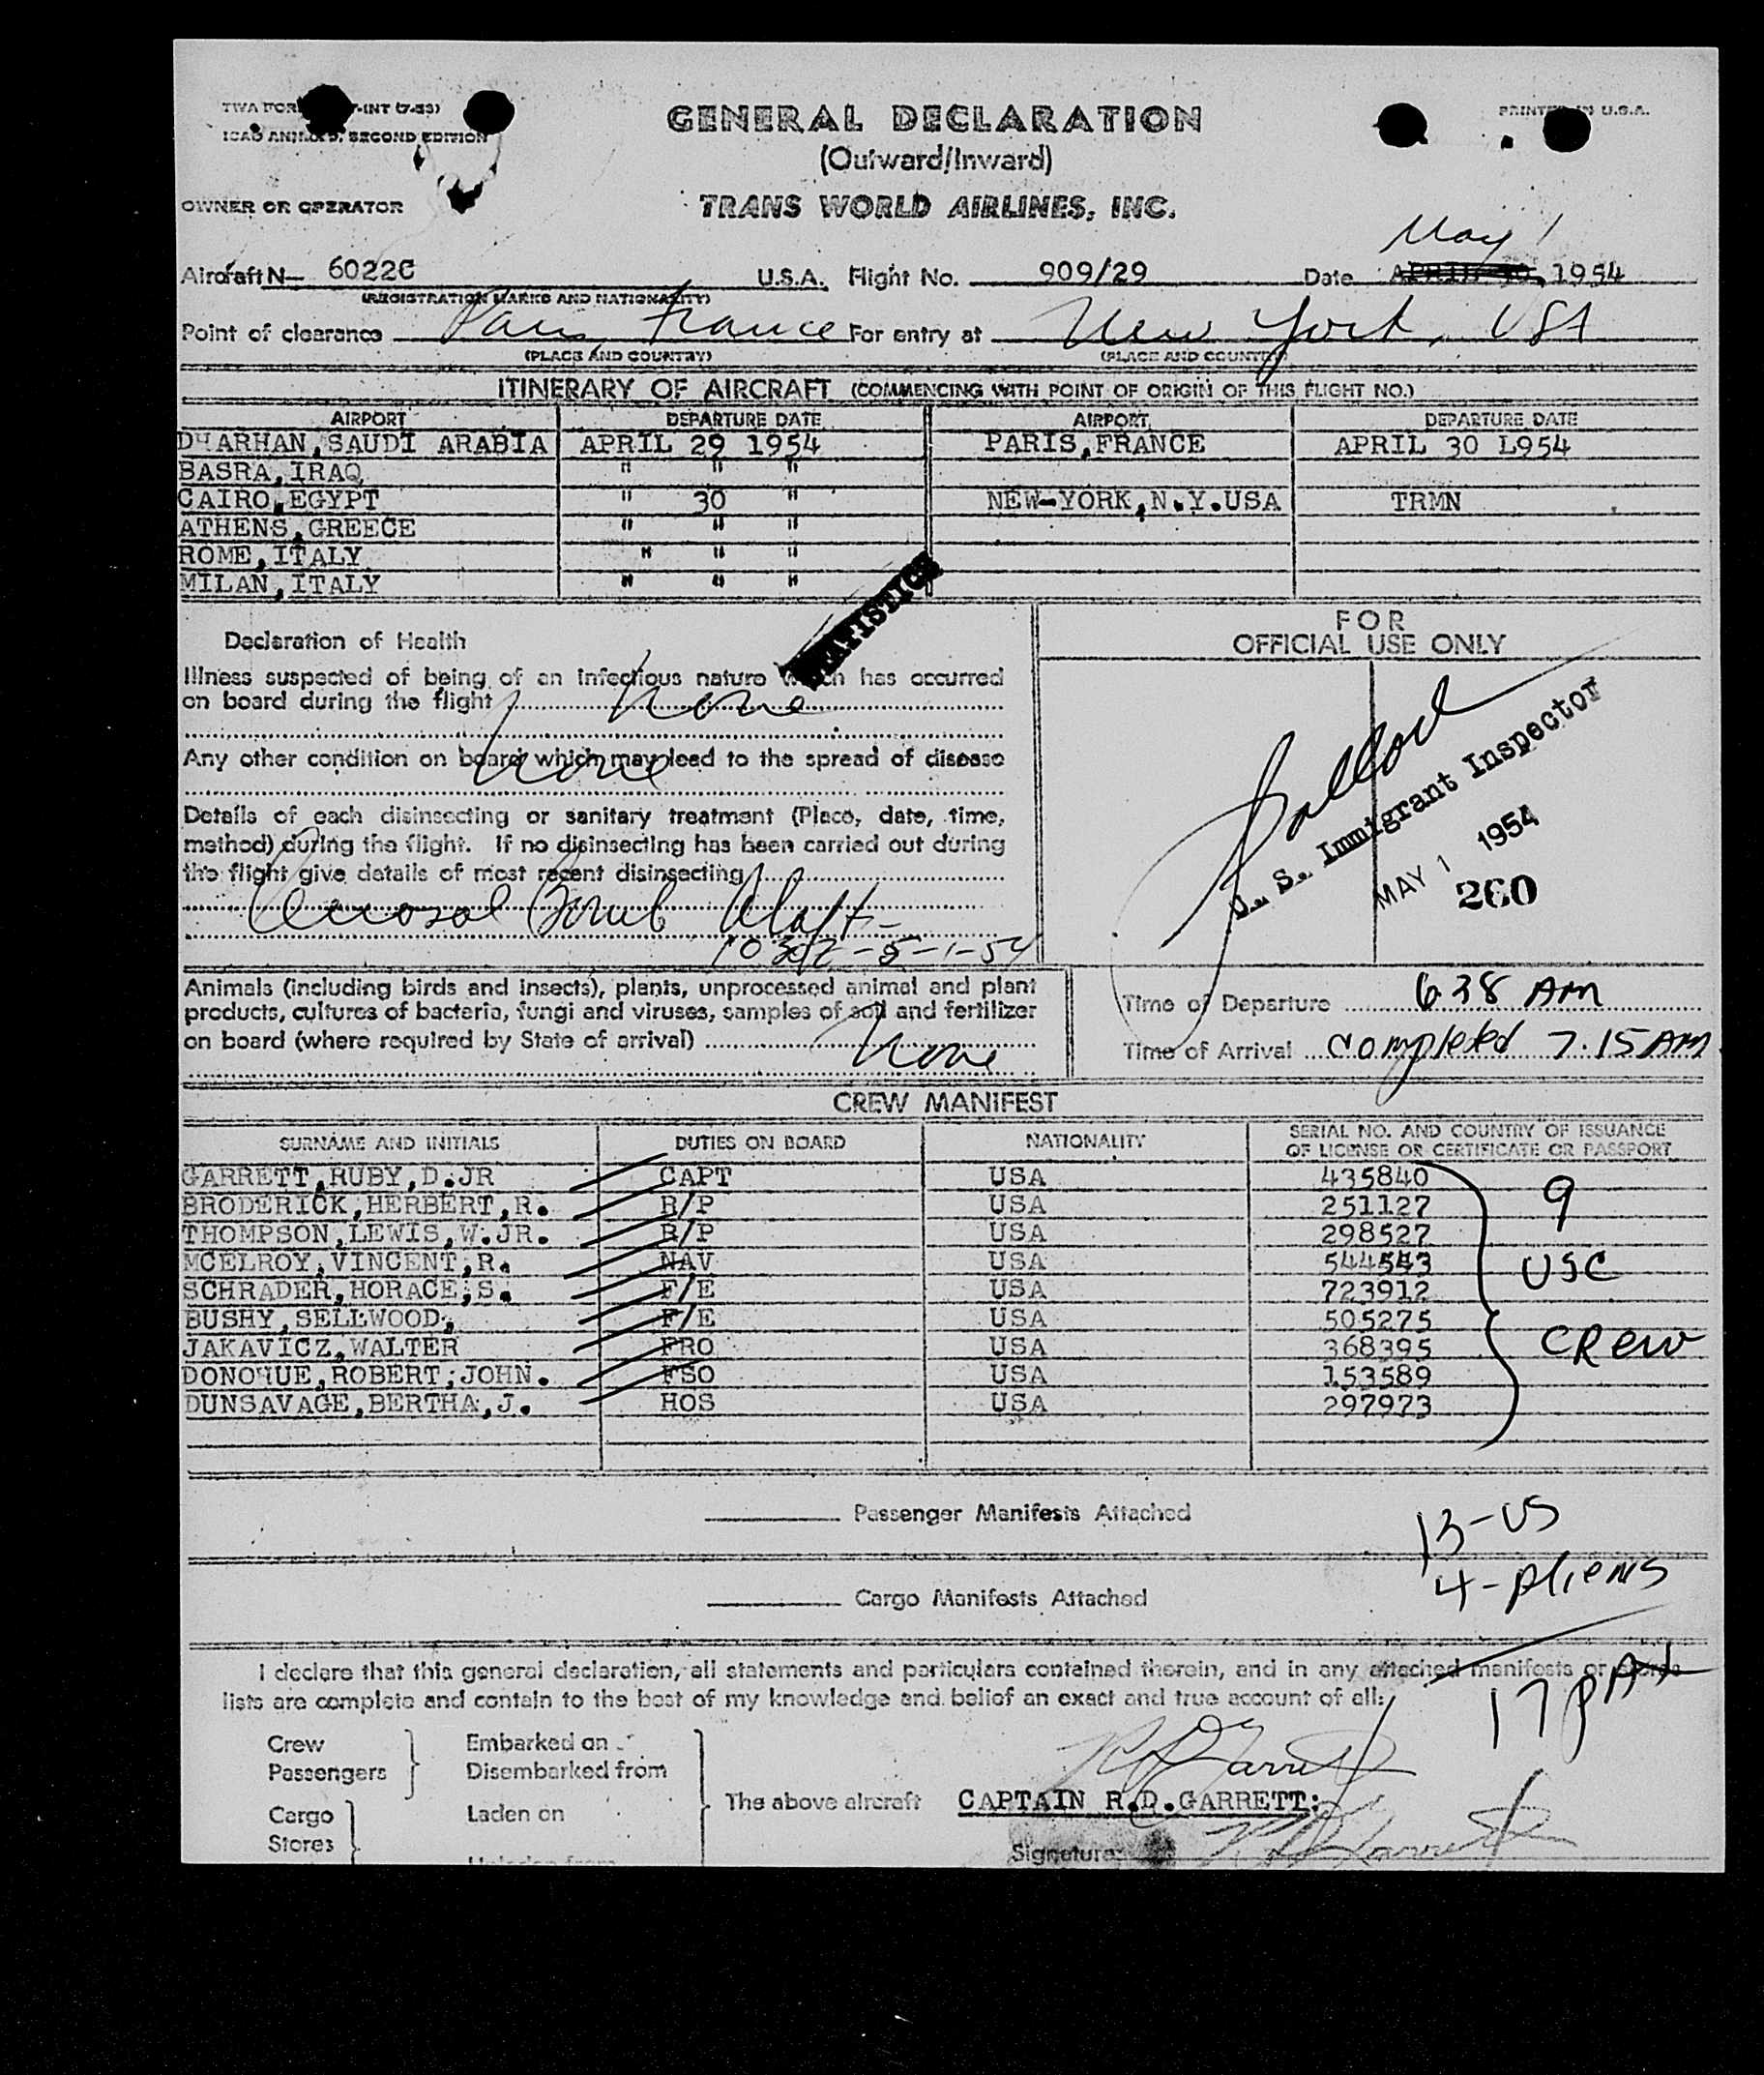 GENERAL DECLARATION
PRINTED IN U.S.A.
(Outward/Inward)
SECOND EDITION
OWNER OR OPERATOR
TRANS WORLD AIRLINES, INC.
May 1
Aircraft N— 6022C U.S.A. Flight No. 909/29 Date APRIL 30, 1954
(REGISTRATION MARKS AND NATIONALITY)
Point of clearance Paris, France For entry at New York, USA
(PLACE AND COUNTRY) (PLACE AND COUNTRY)
ITINERARY OF AIRCRAFT (COMMENCING WITH POINT OF ORIGIN OF THIS FLIGHT NO.)
AIRPORT DEPARTURE DATE AIRPORT DEPARTURE DATE
DHARHAN,SAUDI ARABIA APRIL 29 1954 PARIS,FRANCE APRIL 30 L954
BASRA,IRAQ " " "
CAIRO,EGYPT " 30 " NEW-YORK,N.Y.USA TRMN
ATHENS,GREECE " " "
ROME,ITALY " " "
MILAN,ITALY " " "
STATISTICS
FOR
OFFICIAL USE ONLY
Declaration of Health
Illness suspected of being of an infectious nature which has occurred
on board during the flight None
Any other condition on board which may lead to the spread of disease
None
Details of each disinsecting or sanitary treatment (Place, date, time,
method) during the flight. If no disinsecting has been carried out during
the flight give details of most recent disinsecting
Bomb
U. S. Immigrant Inspector
MAY 1 1954
260
Animals (including birds and insects), plants, unprocessed animal and plant
products, cultures of bacteria, fungi and viruses, samples of soil and fertilizer
on board (where required by State of arrival) None
Time of Departure 6 38 AM
Time of Arrival Completed 7.15 AM
CREW MANIFEST
SURNAME AND INITIALS DUTIES ON BOARD NATIONALITY SERIAL NO. AND COUNTRY OF ISSUANCE
OF LICENSE OR CERTIFICATE OR PASSPORT
GARRETT,RUBY,D.JR CAPT USA 435840
BRODERICK,HERBERT,R. R/P USA 251127
THOMPSON,LEWIS,W.JR. R/P USA 298527
MCELROY,VINCENT,R. NAV USA 544543
SCHRADER,HORACE,S. F/E USA 723912
BUSHY,SELLWOOD, F/E USA 505275
JAKAVICZ,WALTER FRO USA 368395
DONOHUE,ROBERT,JOHN. FSO USA 153589
DUNSAVAGE,BERTHA,J. HOS USA 297973
9
USC
CREW
Passenger Manifests Attached
13-US
4-Aliens
Cargo Manifests Attached
17 PAX
I declare that this general declaration, all statements and particulars contained therein, and in any attached manifests or
lists are complete and contain to the best of my knowledge and belief an exact and true account of all:
Crew
Passengers
Embarked on
Disembarked from
R D Garrett
Cargo
Stores
Laden on
The above aircraft CAPTAIN R.D.GARRETT:
Signature R D Garrett